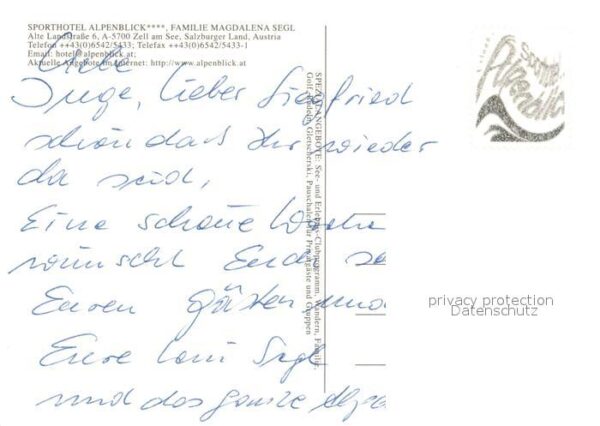 SPORTHOTEL ALPENBLICK****, FAMILIE MAGDALENA SEGL
Alte Landstraße 6, A-5700 Zell am See, Salzburger Land, Austria
Telefon ++43(0)6542/5433; Telefax ++43(0)6542/5433-1
Email: hotel@alpenblick.at;
Aktuelle Angebote im Internet: http://www.alpenblick.at
Liebe
Inge, lieber Siegfried
schön daß Ihr wieder
da seid,
Eine schöne Woche
wünscht Euch
Euren Gästen und
Eure Segl
und das ganze
SPEZIALANGEBOTE: See- und Erlebnis-Clubprogramm, Wandern, Familie,
Golf, Radeln, Gletscherski, Pauschalen für Privatgäste und Gruppen
Sporthotel
Alpenblick
privacy protection
Datenschutz